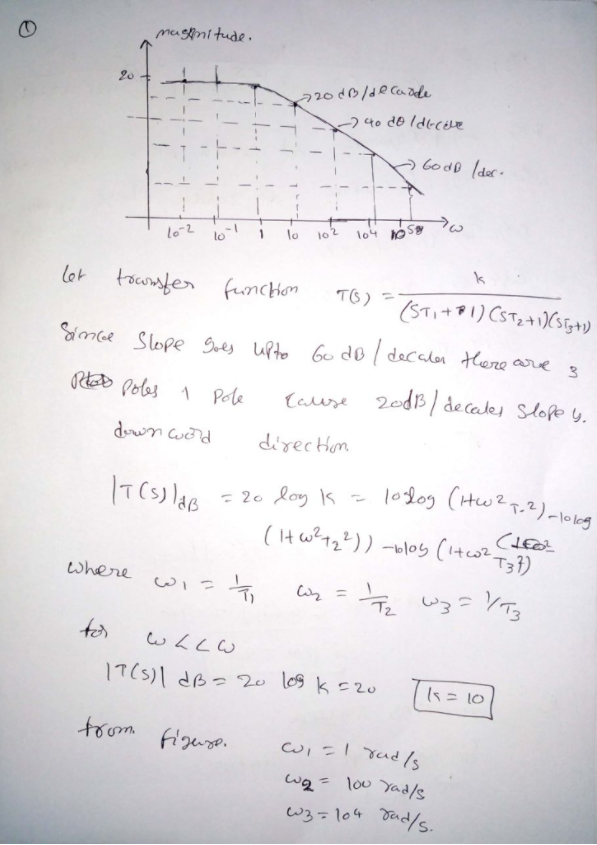 ①
magnitude.
20
20 dB/decade
40 dB/decade
60 dB/dec.
10⁻² 10⁻¹ 1 10 10² 10⁴ 10⁵ ω
let transfer function T(s) = k / (ST₁+1)(ST₂+1)(ST₃+1)
Since slope goes upto 60 dB/decades there are 3
poles 1 pole cause 20dB/decades slope
downword direction
|T(s)|dB = 20 log k = 10log (1+ω²T₁²) -10log
(1+ω²T₂²)) -10log (1+ω²T₃²)
where ω₁ = 1/T₁ ω₂ = 1/T₂ ω₃ = 1/T₃
for ω << ω
|T(s)| dB = 20 log k = 20 k = 10
from figure. ω₁ = 1 rad/s
ω₂ = 100 rad/s
ω₃ = 104 rad/s.